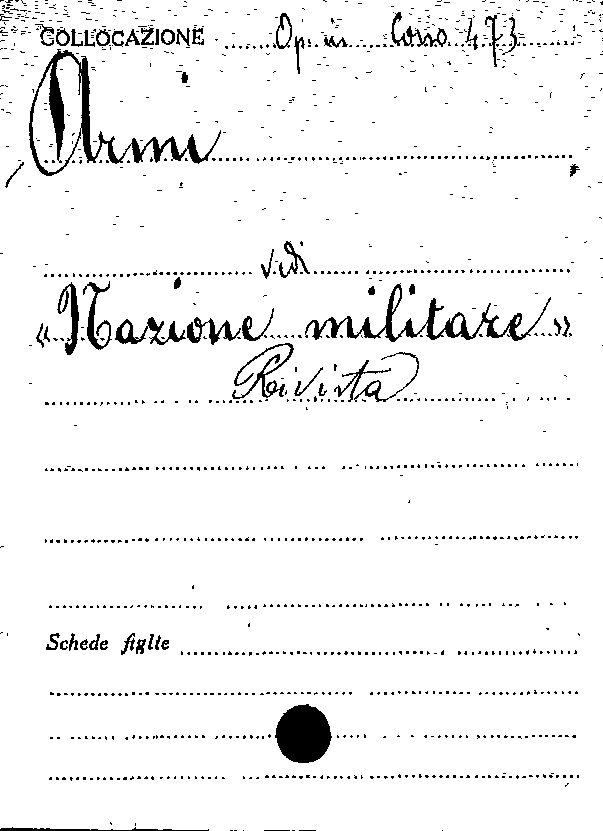 COLLOCAZIONE Op. in Corso 473
Armi
vedi
«Nazione militare»
Rivista
Schede figlie